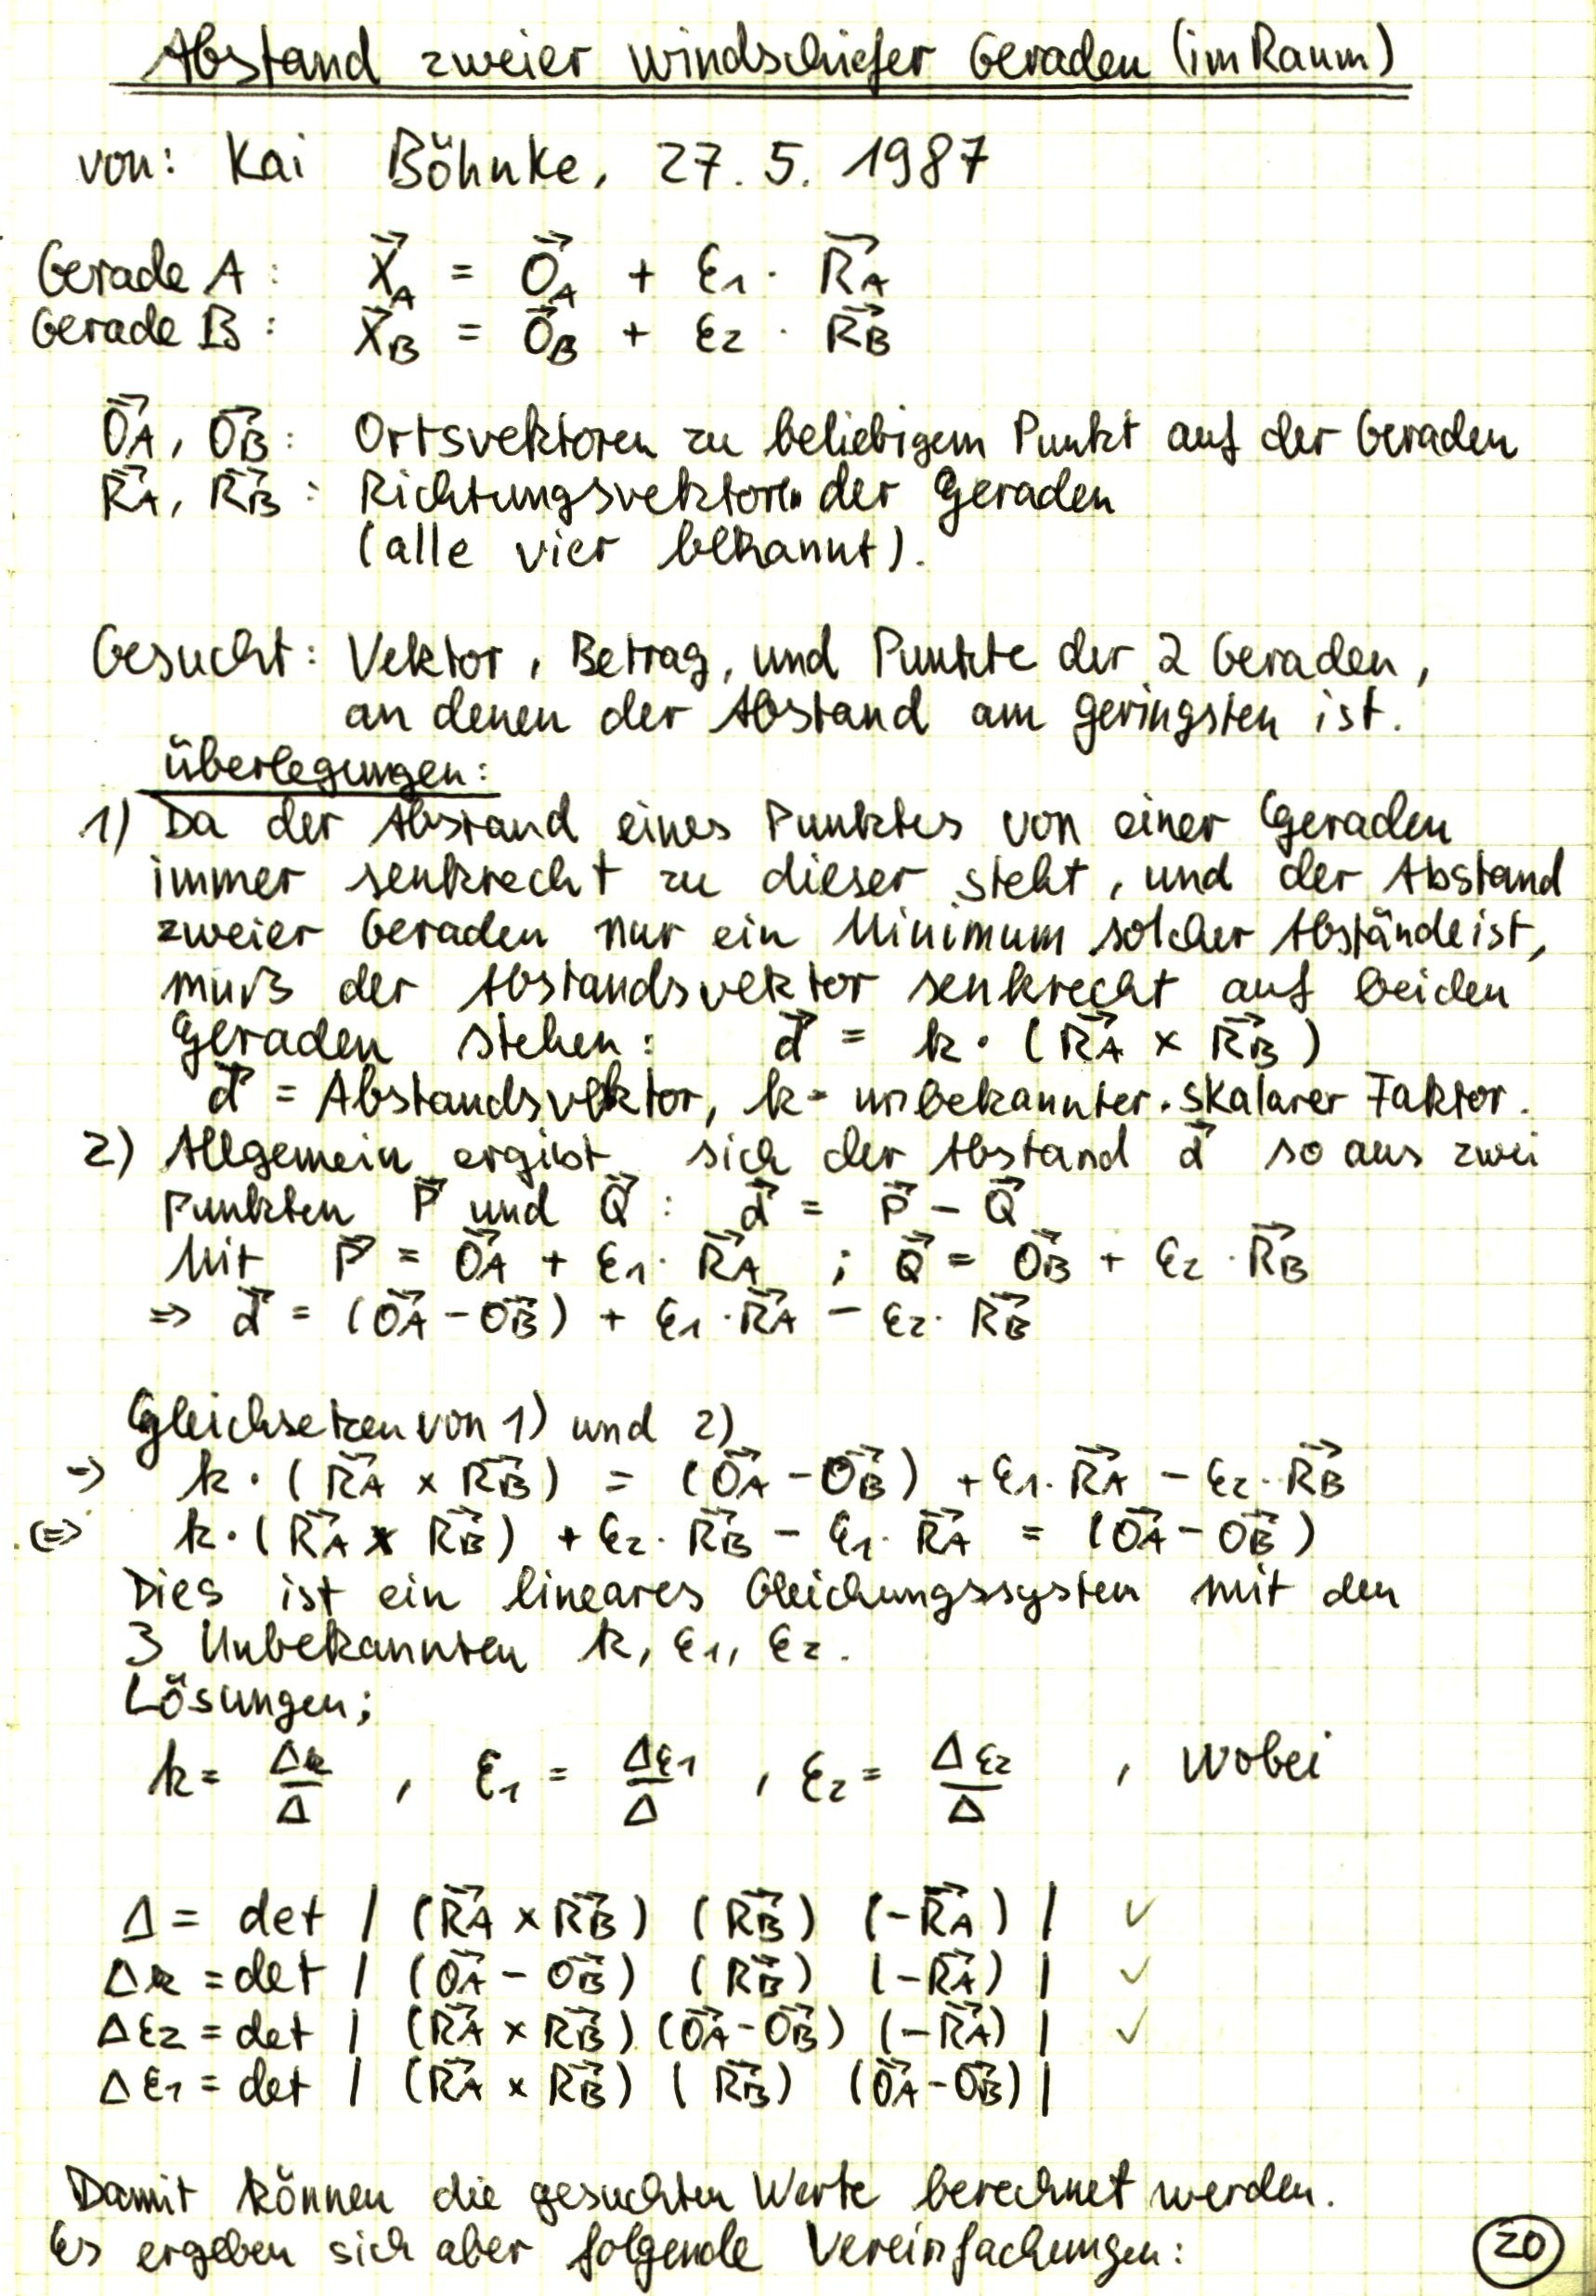 Abstand zweier windschiefer Geraden (im Raum)
von: Kai Böhnke, 27. 5. 1987
Gerade A: X⃗_A = O⃗_A + ε₁ · R⃗_A
Gerade B: X⃗_B = O⃗_B + ε₂ · R⃗_B
O⃗_A, O⃗_B: Ortsvektoren zu beliebigem Punkt auf der Geraden
R⃗_A, R⃗_B: Richtungsvektoren der Geraden
(alle vier bekannt).
Gesucht: Vektor, Betrag, und Punkte der 2 Geraden,
an denen der Abstand am geringsten ist.
Überlegungen:
1) Da der Abstand eines Punktes von einer Geraden
immer senkrecht zu dieser steht, und der Abstand
zweier Geraden nur ein Minimum solcher Abstände ist,
muß der Abstandsvektor senkrecht auf beiden
Geraden stehen: d⃗ = k · (R⃗_A × R⃗_B)
d⃗ = Abstandsvektor, k = unbekannter skalarer Faktor.
2) Allgemein ergibt sich der Abstand d⃗ so aus zwei
Punkten P⃗ und Q⃗: d⃗ = P⃗ − Q⃗
Mit P⃗ = O⃗_A + ε₁ · R⃗_A ; Q⃗ = O⃗_B + ε₂ · R⃗_B
⇒ d⃗ = (O⃗_A − O⃗_B) + ε₁ · R⃗_A − ε₂ · R⃗_B
Gleichsetzen von 1) und 2)
⇒ k · (R⃗_A × R⃗_B) = (O⃗_A − O⃗_B) + ε₁ · R⃗_A − ε₂ · R⃗_B
⇔ k · (R⃗_A × R⃗_B) + ε₂ · R⃗_B − ε₁ · R⃗_A = (O⃗_A − O⃗_B)
Dies ist ein lineares Gleichungssystem mit den
3 Unbekannten k, ε₁, ε₂.
Lösungen:
k = Δk/Δ , ε₁ = Δε₁/Δ , ε₂ = Δε₂/Δ , wobei
Δ = det | (R⃗_A × R⃗_B) (R⃗_B) (−R⃗_A) | ✓
Δk = det | (O⃗_A − O⃗_B) (R⃗_B) (−R⃗_A) | ✓
Δε₂ = det | (R⃗_A × R⃗_B) (O⃗_A − O⃗_B) (−R⃗_A) | ✓
Δε₁ = det | (R⃗_A × R⃗_B) (R⃗_B) (O⃗_A − O⃗_B) |
Damit können die gesuchten Werte berechnet werden.
Es ergeben sich aber folgende Vereinfachungen:
20